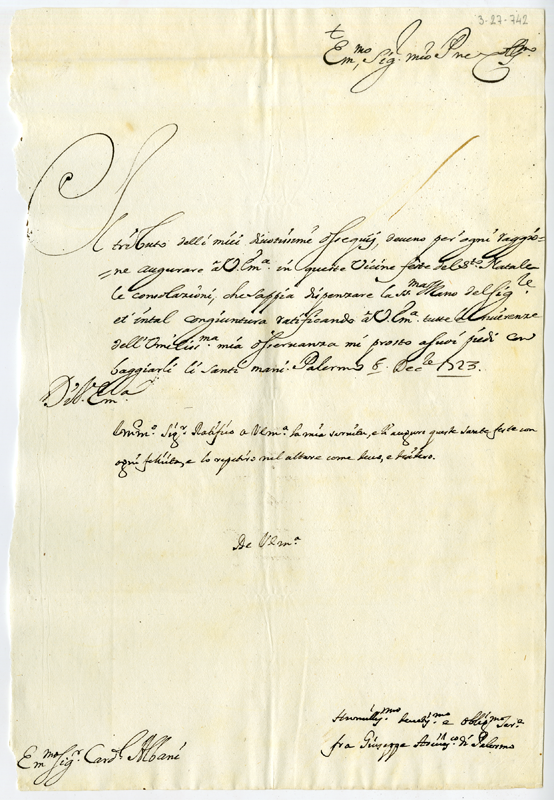 3-27-742
Em.mo Sig.r mio P.ne
Il tributo delli miei divotissimi ossequij, devono per ogni raggio=
=ne augurare à V. Em.a in queste vicine feste del S.to Natale
le consolazioni, che sappia dispenzare la St.ma Mano del Sig.re
et in tal congiuntura ratificando à V. Em.a tutte
dell' Umiliss.ma mia osservanza mi prosto a suoi piedi con
baggiarli li santi mani. Palermo Dec.re 1723.
Di V. Em.za
Em.mo Sig.r Ratifico a V. Em.a la mia servitù, e l'auguro queste sante feste con
ogni felicità, e lo
De V. Em.a
Humiliss.mo e oblig.mo Ser.e
fra Giuseppe Arciv.co di Palermo
Em.mo Sig.r Card.l Albani